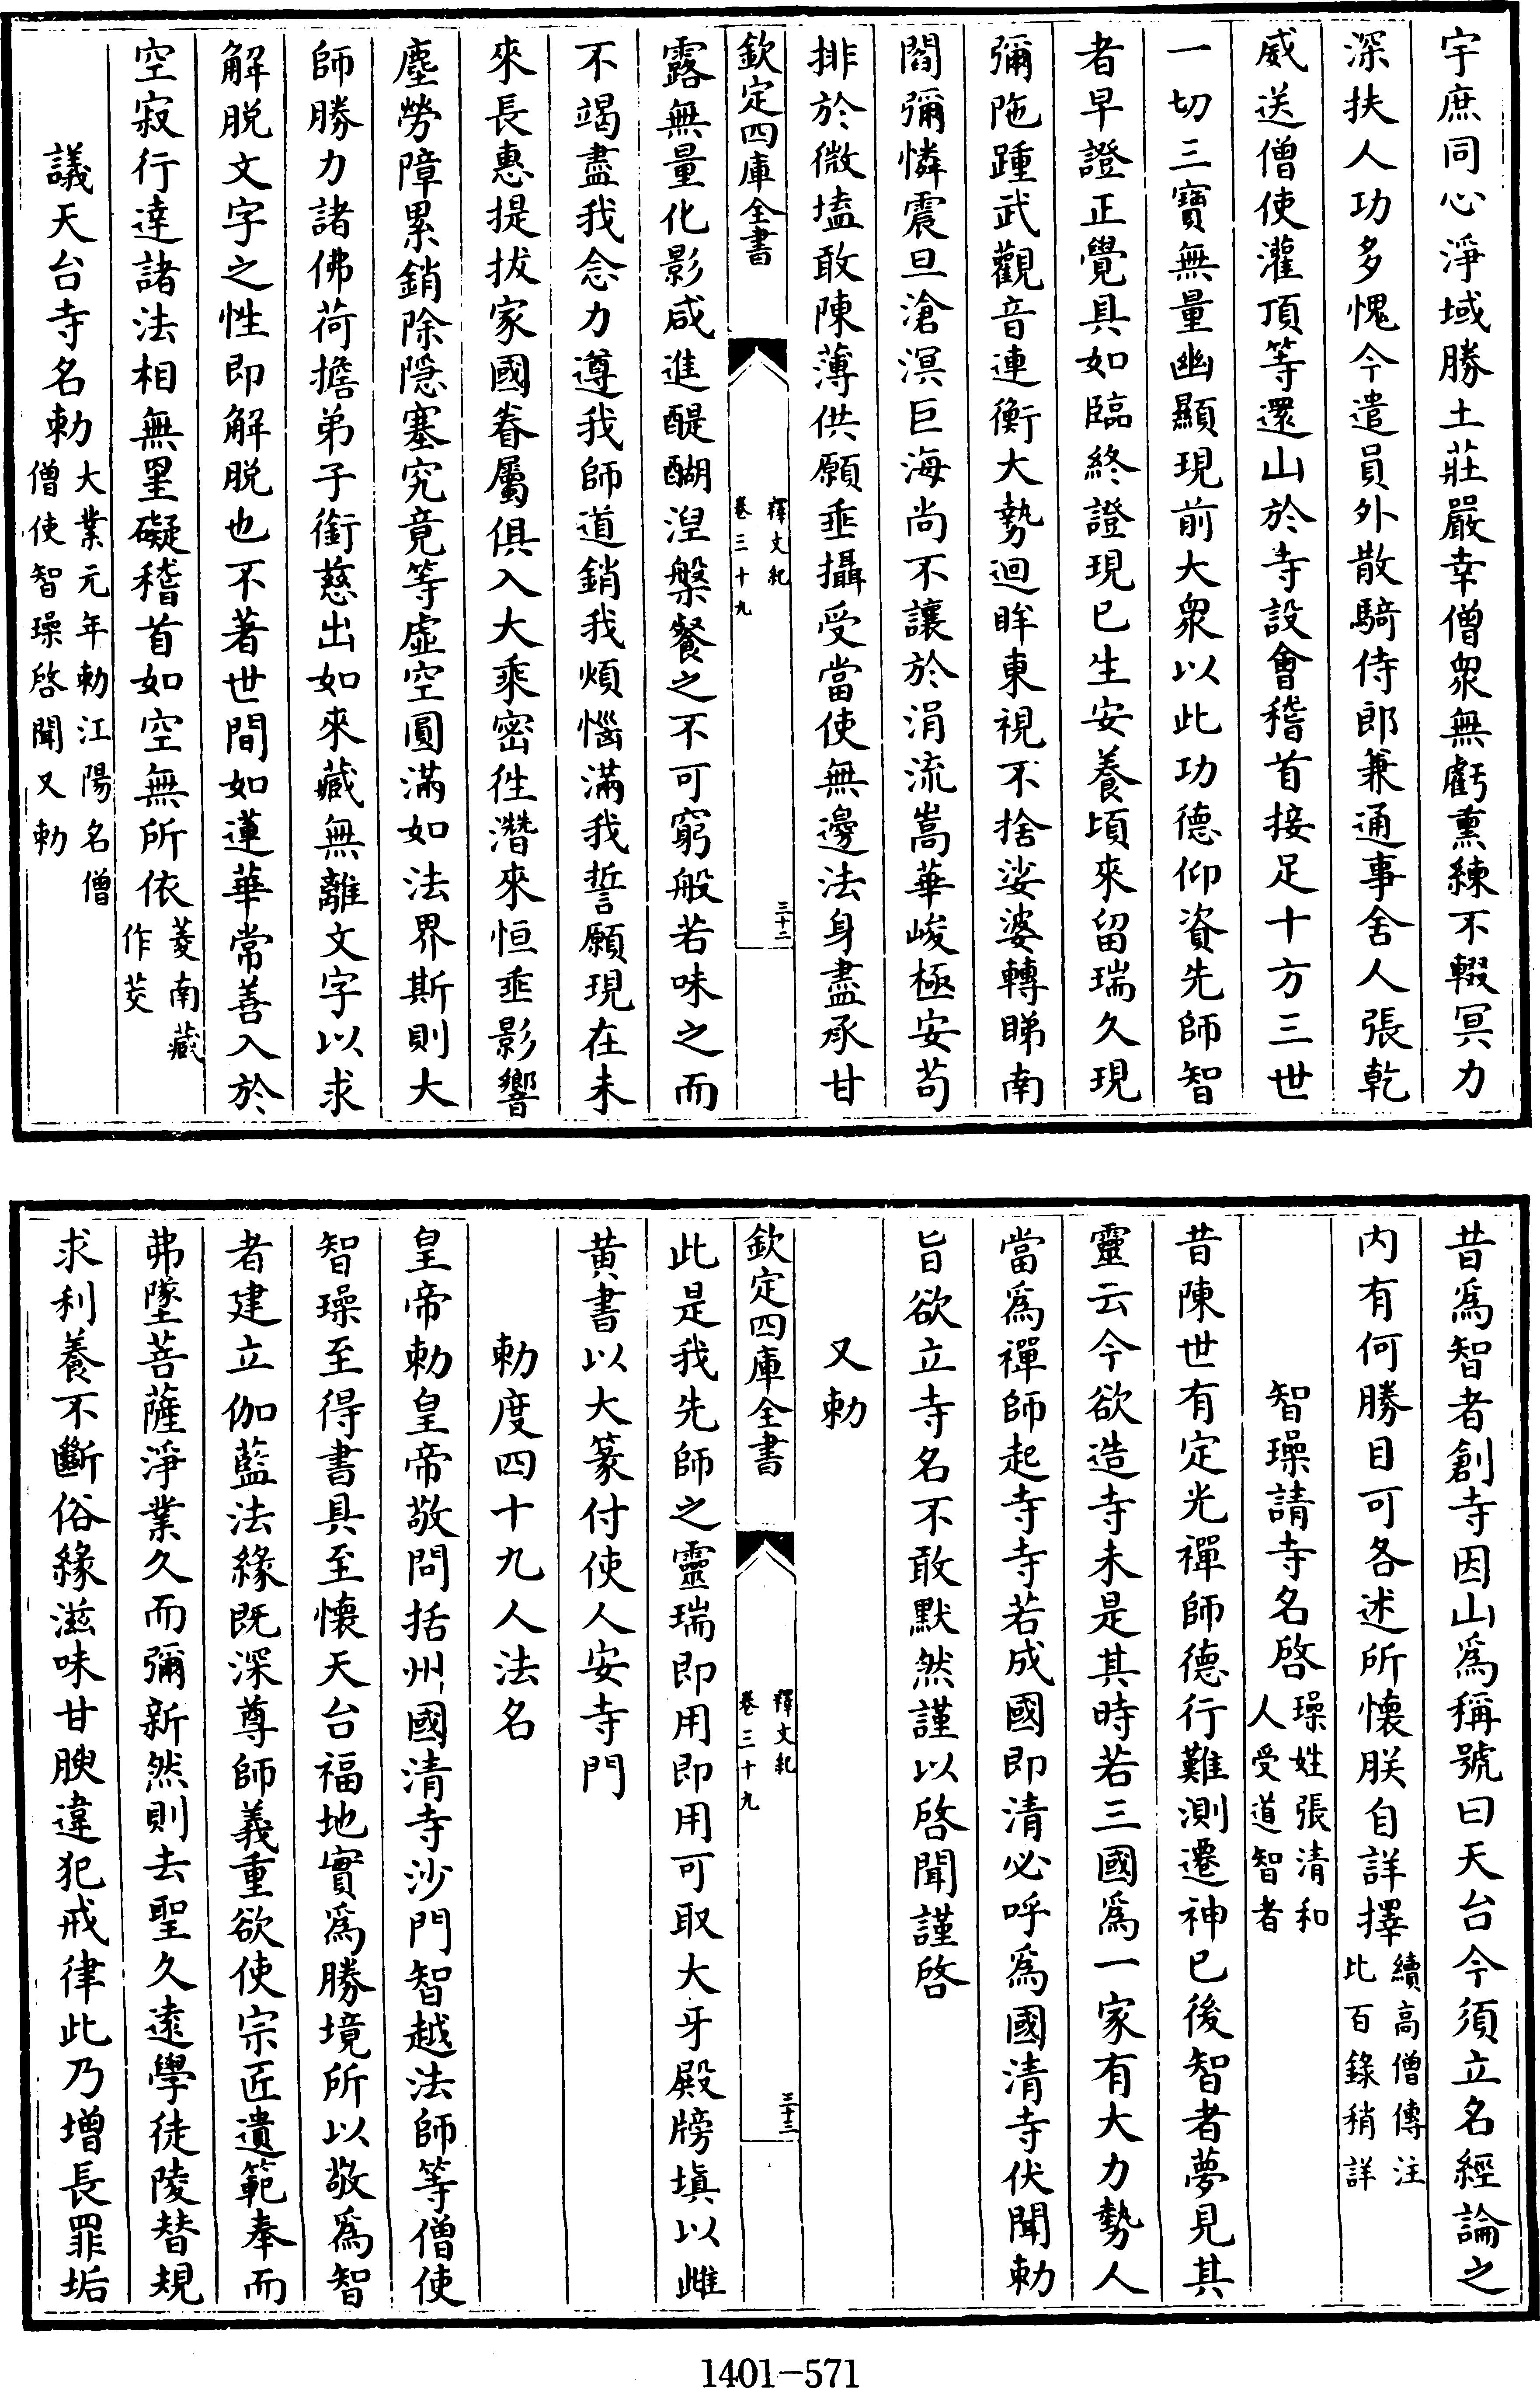 宇庶同心淨域勝土莊嚴幸僧衆無虧熏練不輟冥力
深扶人功多愧今遣員外散騎侍郎兼通事舍人張乾
威送僧使灌頂等還山於寺設會稽首接足十方三世
一切三寶無量幽顯現前大衆以此功德仰資先師智
者早證正覺具如臨終證現已生安養頃來留瑞久現
彌陁踵武觀音連衡大勢迴眸東視不捨娑婆轉睇南
閻彌憐震旦滄溟巨海尚不讓於涓流嵩華峻極安苟
排於微塩敢陳薄供願垂攝受當使無邊法身盡承甘
欽定四庫全書
釋文紀
卷三十九
三十二
露無量化影咸進醍醐湼槃餐之不可窮般若味之而
不竭盡我念力遵我師道銷我煩惱滿我誓願現在未
來長惠提拔家國眷屬俱入大乘密徃潛來恒垂影響
塵勞障累銷除隱塞究竟等虛空圓滿如法界斯則大
師勝力諸佛荷擔弟子銜慈出如來藏無離文字以求
解脫文字之性即解脫也不著世間如蓮華常善入於
空寂行達諸法相無罣礙稽首如空無所依菱南藏
作茭
議天台寺名勅大業元年勅江陽名僧
僧使智璪啓聞又勅
昔爲智者創寺因山爲稱號曰天台今須立名經論之
內有何勝目可各述所懷朕自詳擇續高僧傳注
比百錄稍詳
智璪請寺名啓璪姓張清和
人受道智者
昔陳世有定光禪師德行難測遷神已後智者夢見其
靈云今欲造寺未是其時若三國爲一家有大力勢人
當爲禪師起寺寺若成國即清必呼爲國清寺伏聞勅
旨欲立寺名不敢默然謹以啓聞謹啓
又勅
欽定四庫全書
釋文紀
卷三十九
三十三
此是我先師之靈瑞即用即用可取大牙殿牓塡以雌
黃書以大篆付使人安寺門
勅度四十九人法名
皇帝勅皇帝敬問括州國清寺沙門智越法師等僧使
智璪至得書具至懷天台福地實爲勝境所以敬爲智
者建立伽藍法緣既深尊師義重欲使宗匠遺範奉而
弗墜菩薩淨業久而彌新然則去聖久遠學徒陵替規
求利養不斷俗緣滋味甘腴違犯戒律此乃增長罪垢
1401-571